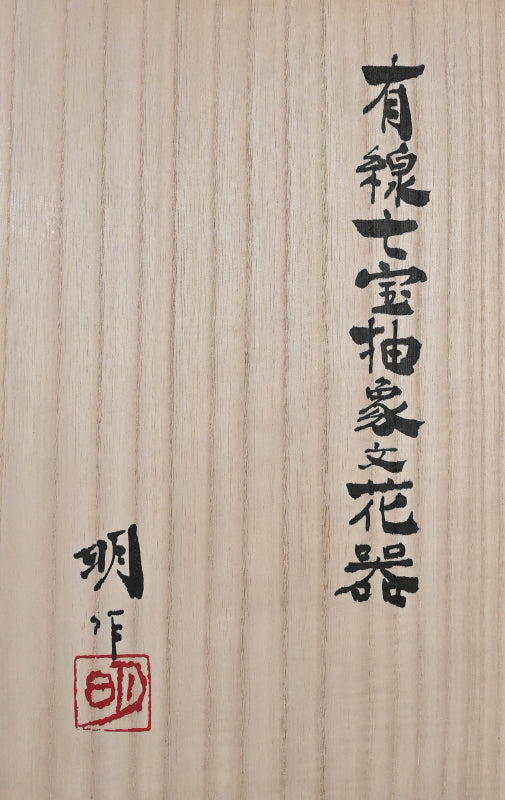 有線七宝抽象文花器
明作
明